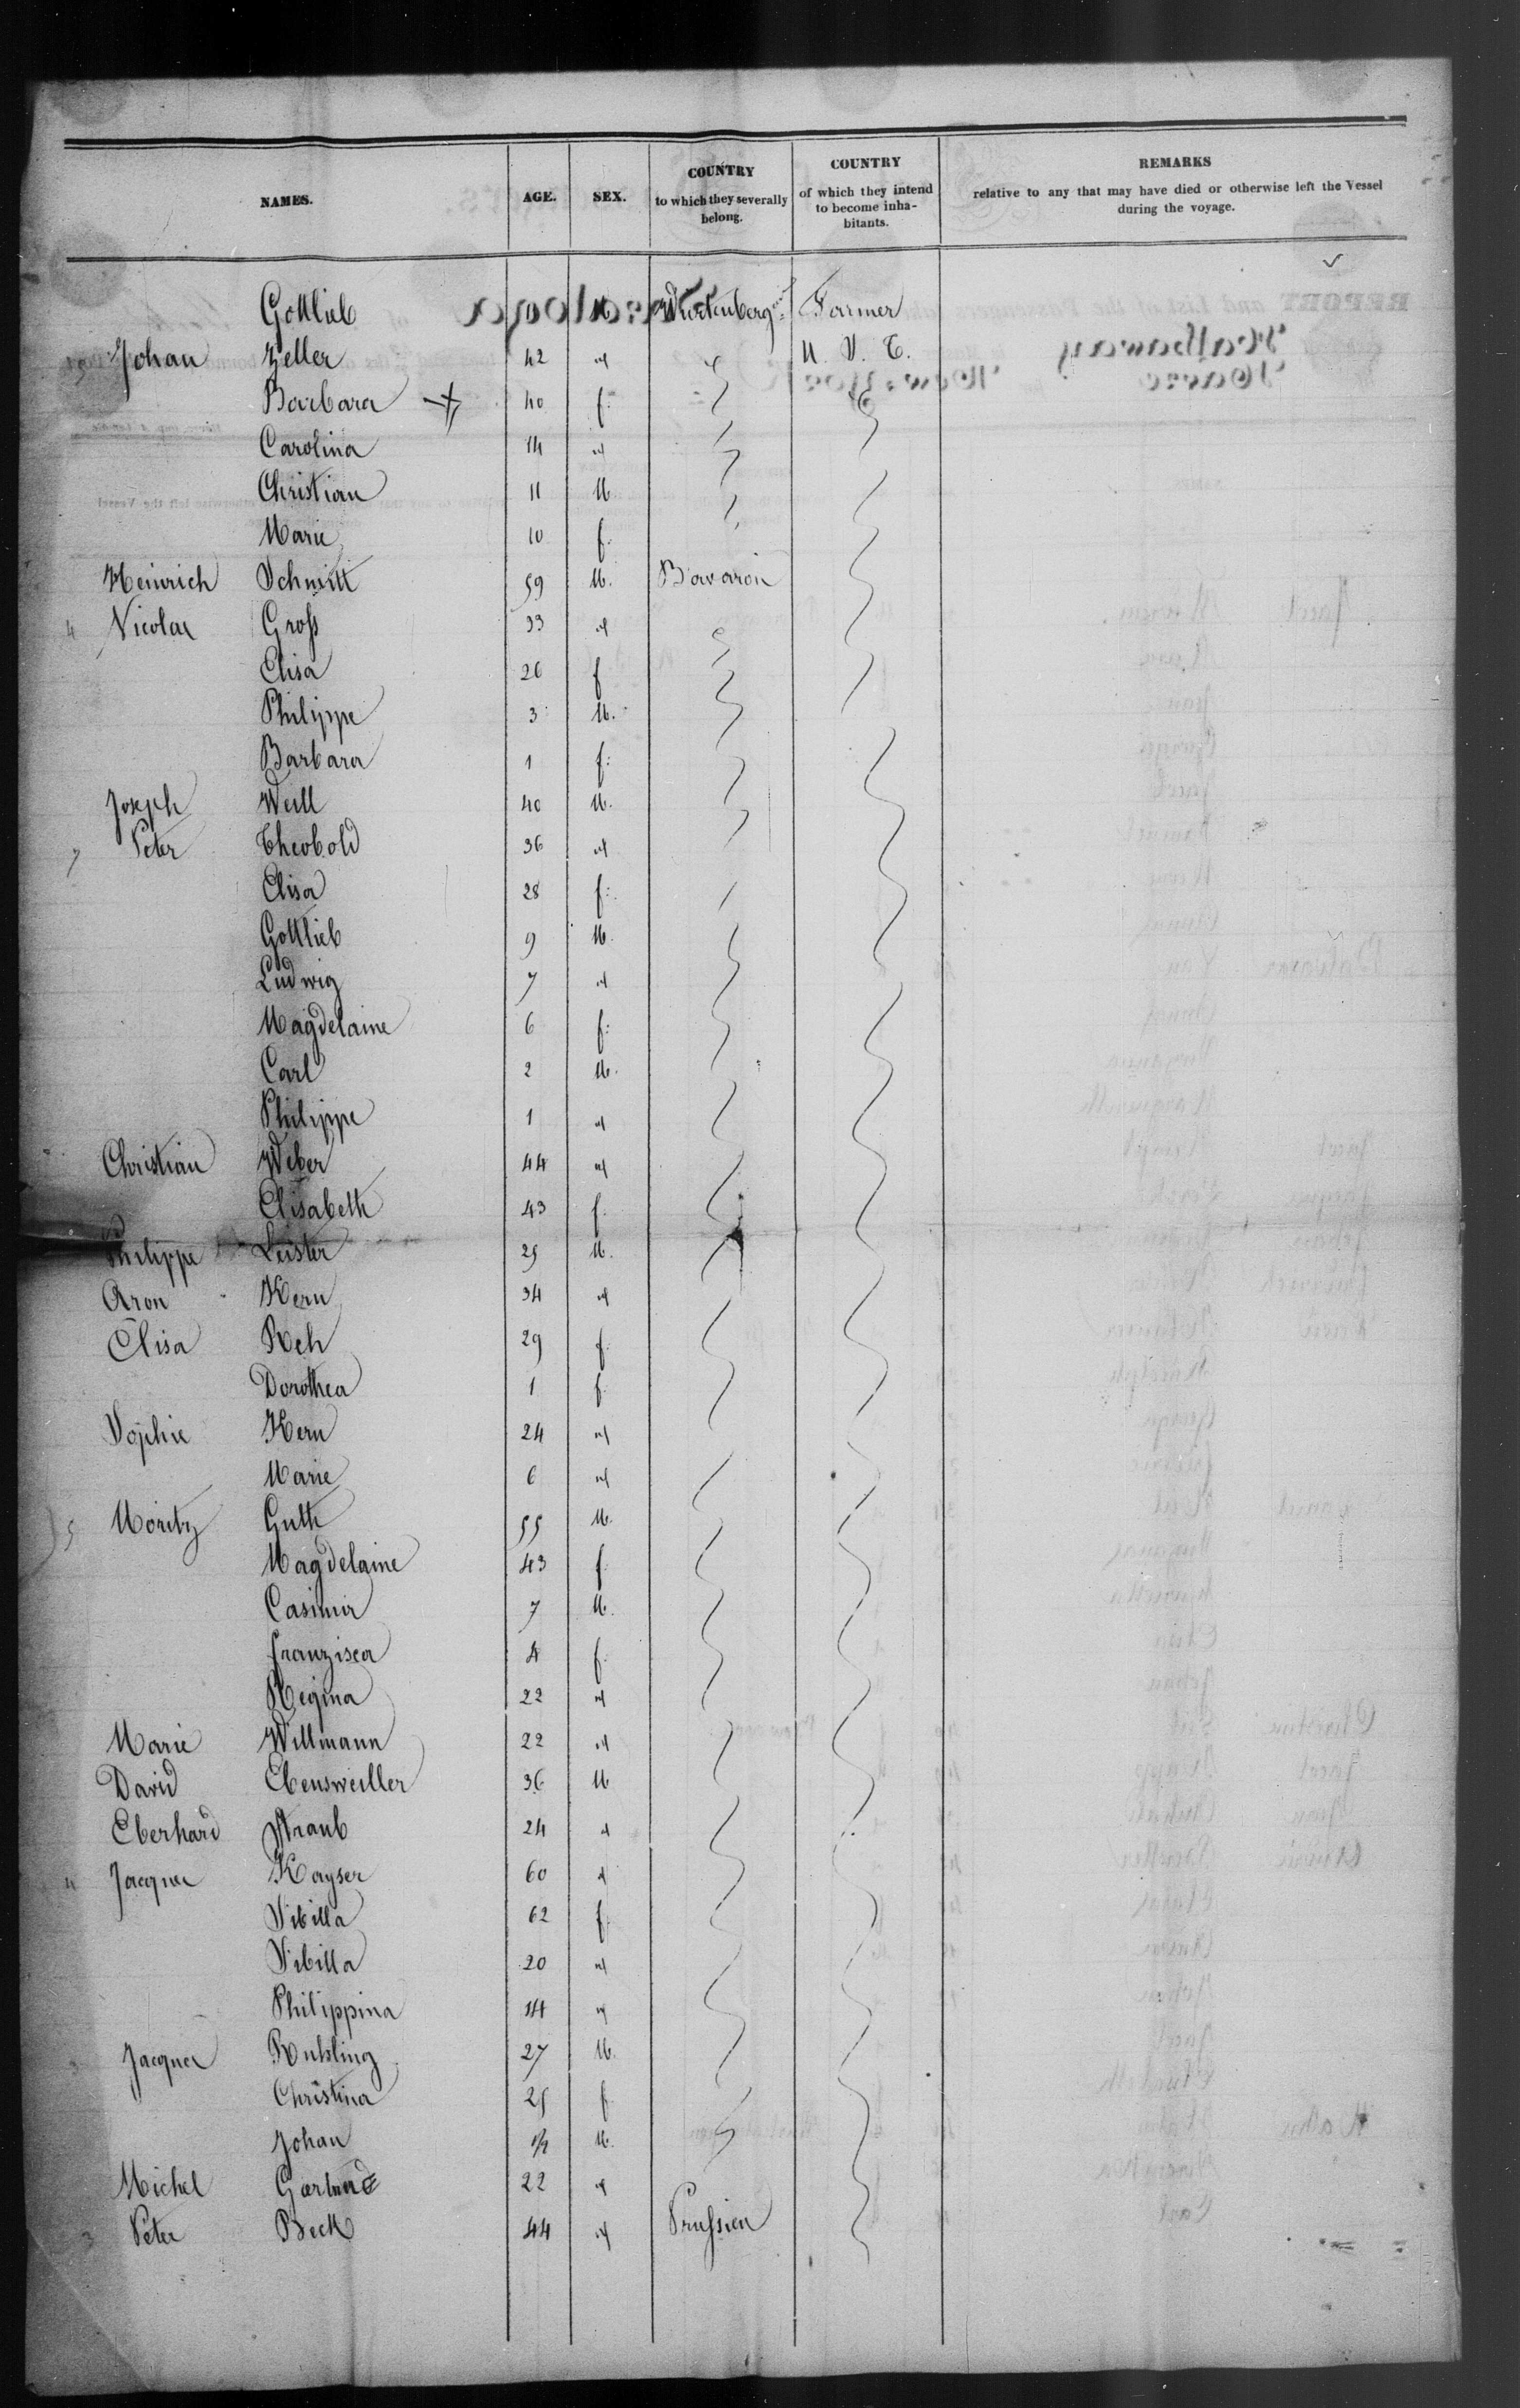 NAMES. AGE. SEX. COUNTRY to which they severally belong. COUNTRY of which they intend to become inhabitants. REMARKS relative to any that may have died or otherwise left the Vessel during the voyage.
Gottlieb Wurtenberg Farmer
Johan Zeller 42 " " U. S. C.
Barbara 40 f.
Carolina 14 "
Christian 11 M
Marie 10 f.
Heinrich Schmitt 59 M. Bavaron
4 Nicolas Groß 33 "
Elisa 26 f
Philippe 3 M.
Barbara 1 f.
Joseph Weill 40 M.
7 Peter Theobold 36 "
Elisa 28 f.
Gottlieb 9 M.
Ludwig 7 "
Magdelaine 6 f.
Carl 2 M.
Philippe 1 "
Christian Weber 44 "
Elisabeth 43 f.
Philippe Leister 25 M.
Aron Kern 34 "
Elisa Reh 29 f.
Dorothea 1 f.
Sophie Kern 24 "
Marie 6 "
5 Moritz Guth 55 M.
Magdelaine 43 f.
Casimir 7 M.
Franzisca 4 f.
Regina 22 "
Marie Willmann 22 "
David Ebensweiller 36 M
Eberhard Straub 24 "
4 Jacques Kayser 60 "
Sibilla 62 f.
Sibilla 20 "
Philippina 14 "
Jacques Ruhsling 27 M.
Christina 25 f.
Johan 1/2 M.
Michel 22 "
3 Peter Beck 44 " Prußien